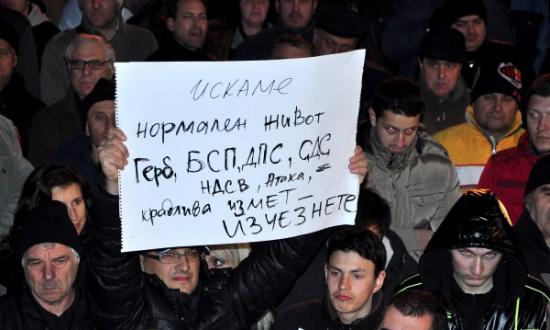 искаме
нормален живот
Герб, БСП, ДПС, СДС
НДСВ, Атака,
крадлива измет_
изчезнете